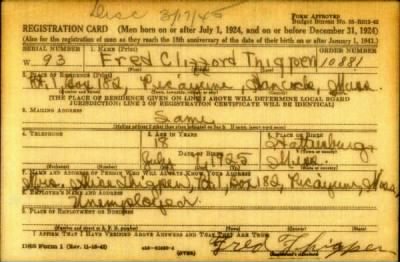 Disc 3/17/45
FORM APPROVED
REGISTRATION CARD—(Men born on or after July 1, 1924, and on or before December 31, 1924)
(Also for the registration of men as they reach the 18th anniversary of the date of their birth on or after January 1, 1943.)
SERIAL NUMBER 1. NAME (Print) ORDER NUMBER
W 93 Fred Clifford Thigpen 10881
2. PLACE OF RESIDENCE (Print)
Rt 1 Box 182 Picayune, Hancock, Miss.
(THE PLACE OF RESIDENCE GIVEN ON LINE 2 ABOVE WILL DETERMINE LOCAL BOARD
JURISDICTION; LINE 2 OF REGISTRATION CERTIFICATE WILL BE IDENTICAL)
3. MAILING ADDRESS
Same
4. TELEPHONE 5. AGE IN YEARS 6. PLACE OF BIRTH
18 Hattiesburg
July 1925 Miss.
7. NAME AND ADDRESS OF PERSON WHO WILL ALWAYS KNOW YOUR ADDRESS
Mrs. Thigpen, Rt 1, Box 182, Picayune, Miss.
8. EMPLOYER'S NAME AND ADDRESS
Unemployed
9. PLACE OF EMPLOYMENT OR BUSINESS
I AFFIRM THAT I HAVE VERIFIED ABOVE ANSWERS AND THAT THEY ARE TRUE.
DSS Form 1 (OVER) Fred Thigpen